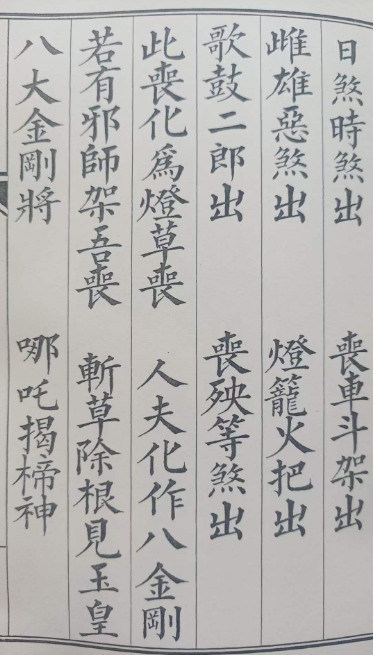 日煞時煞出　喪車斗架出
雌雄惡煞出　燈籠火把出
歌鼓二郎出　喪殃等煞出
此喪化為燈草喪　人夫化作八金剛
若有邪師架吾喪　斬草除根見玉皇
八大金剛將　哪吒揭楴神